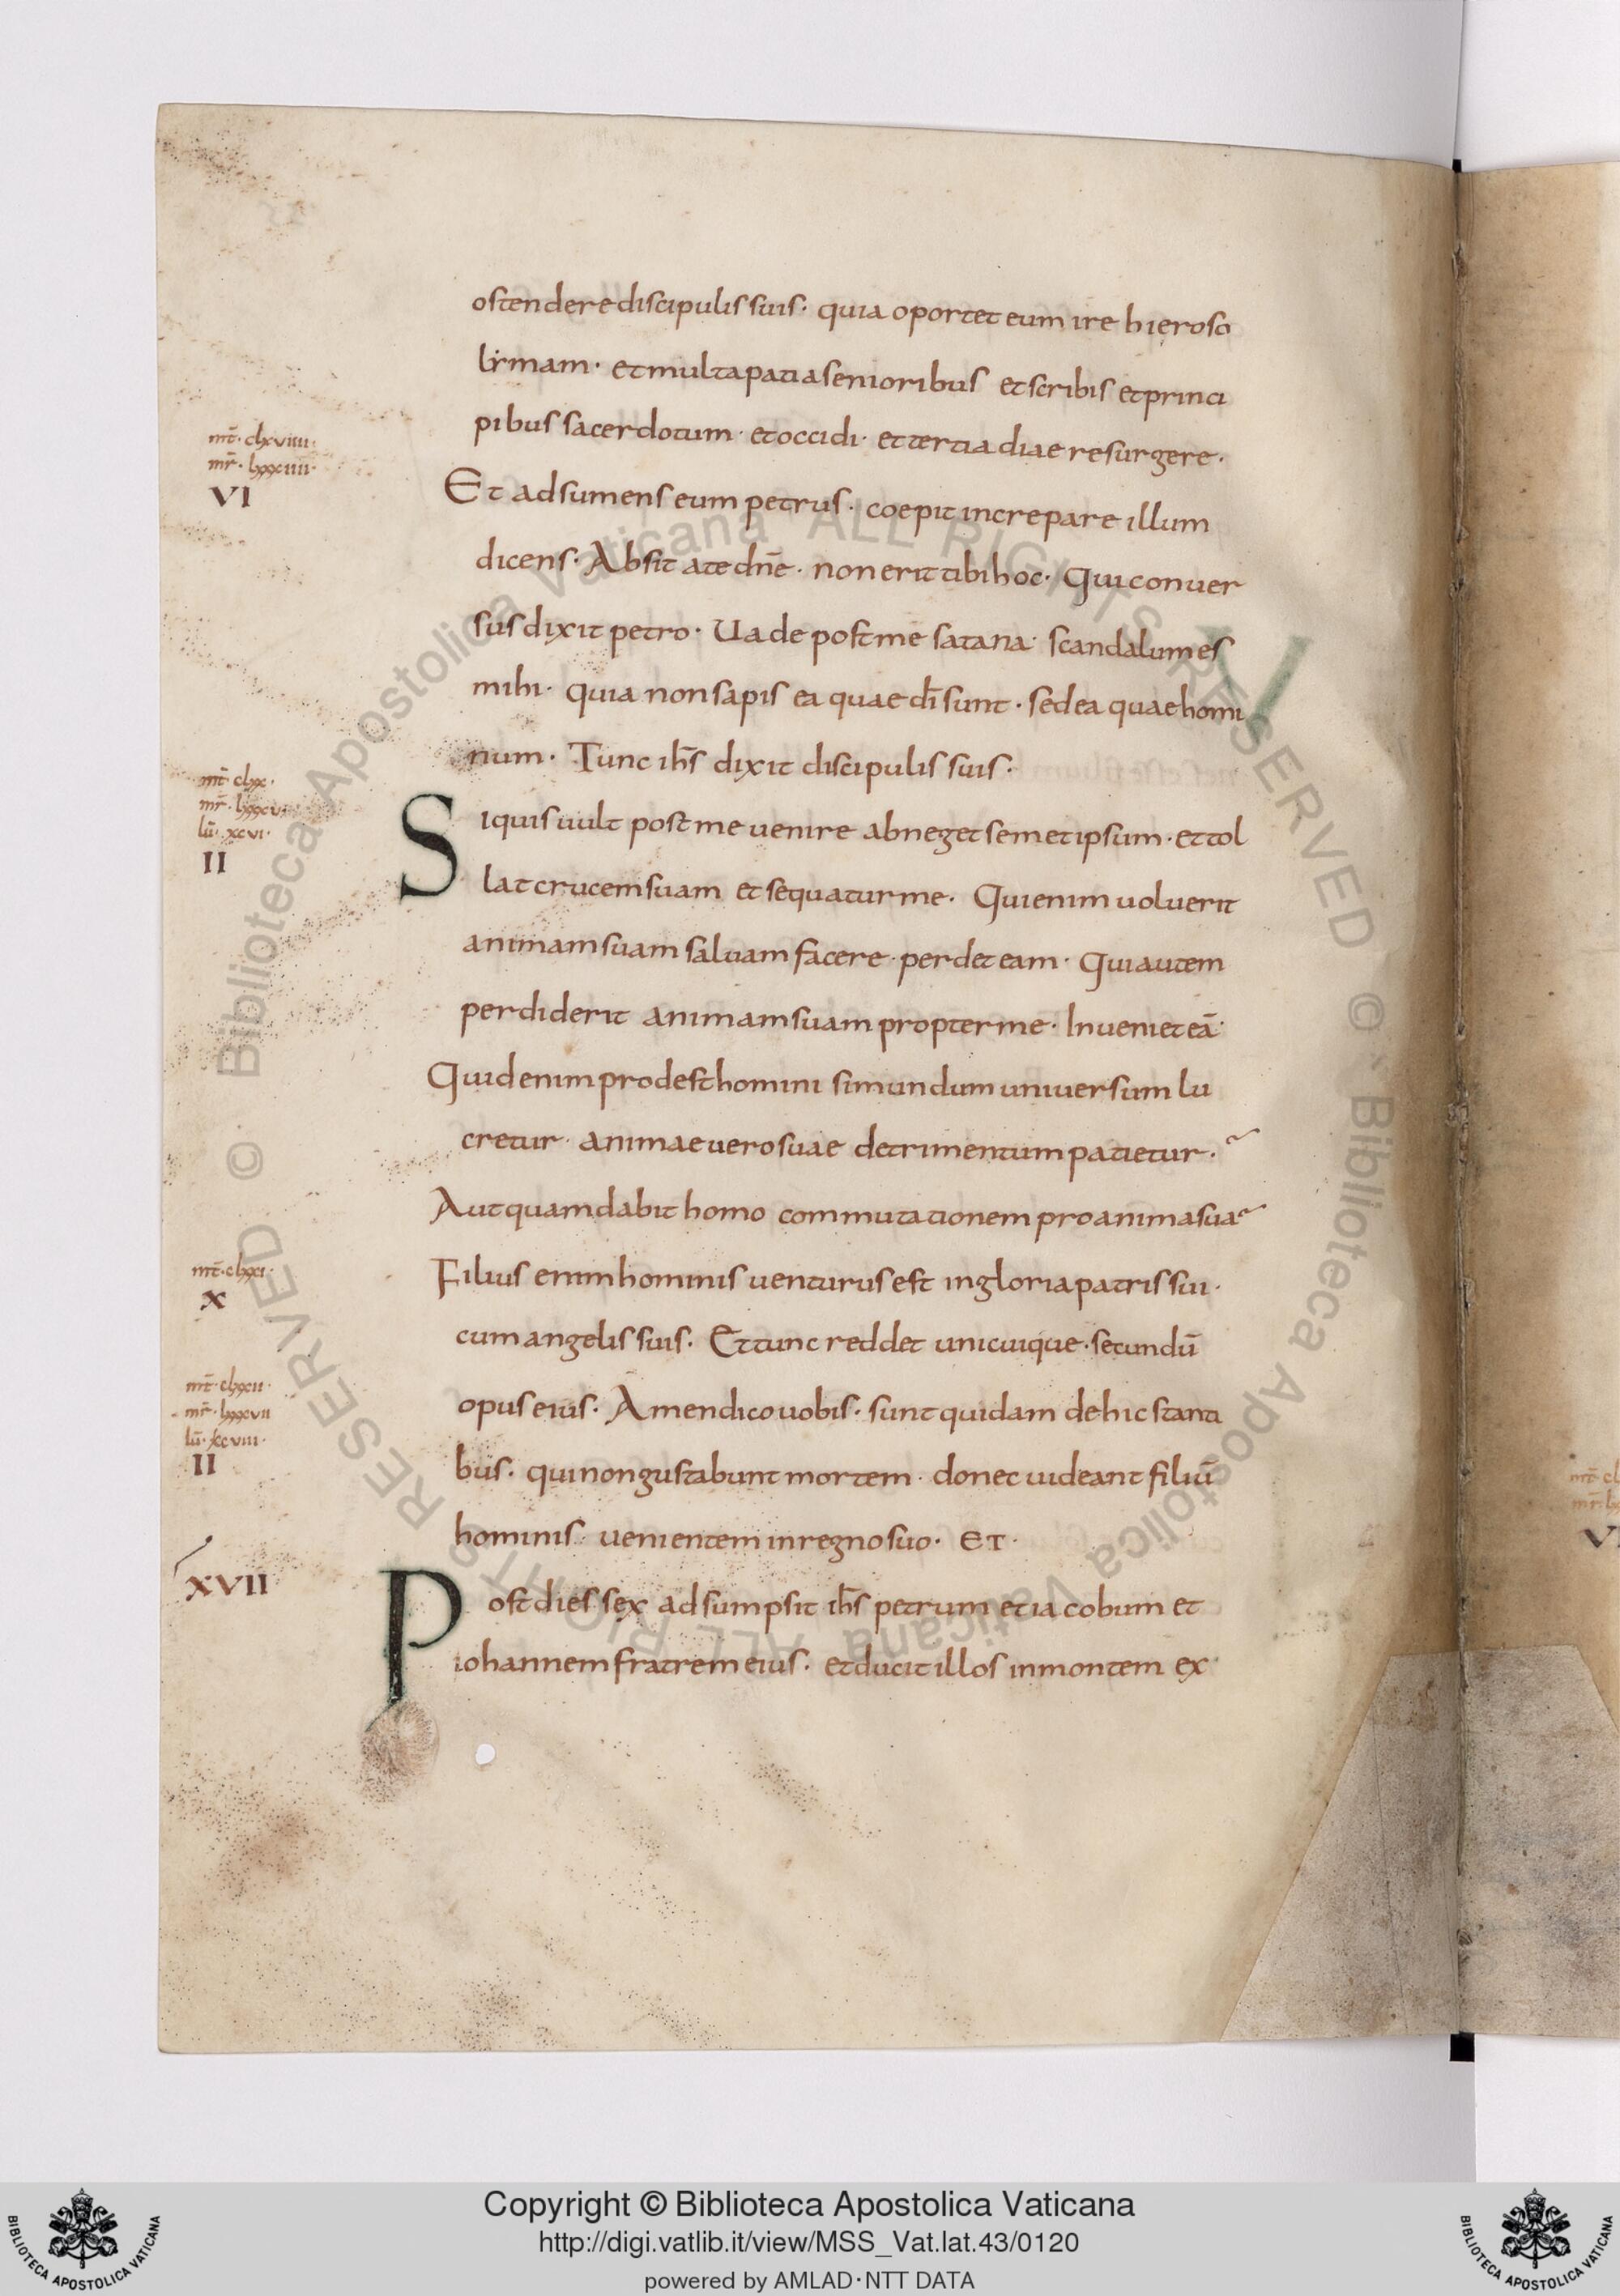 ostendere discipulis suis· quia oportet eum ire hieroso
lẏmam· et multa pati a senioribus et scribis et princi
pibus sacerdotum· et occidi· et tertia diae resurgere·
mt̄· clxviiii·
mr̄· lxxxiiii·
VI
Et adsumens eum petrus· coepit increpare illum
dicens· Absit a te dn̄e· non erit tibi hoc· Qui conuer
sus dixit petro· Uade post me satana· scandalum es
mihi· quia non sapis ea quae dī sunt· sed ea quae homi
num· Tunc ih̄s dixit discipulis suis·
mt̄ clxx·
mr̄· lxxxv·
lū· xcvi·
II
Si quis uult post me uenire abneget semet ipsum· et tol
lat crucem suam et sequatur me· Qui enim uoluerit
animam suam saluam facere· perdet eam· Qui autem
perdiderit animam suam propter me· Inueniet eā·
Quid enim prodest homini si mundum uniuersum lu
cretur· animae uero suae detrimentum patietur·
Aut quam dabit homo commutationem pro anima sua
mt̄· clxxi·
X
Filius enim hominis uenturus est in gloria patris sui·
cum angelis suis· Et tunc reddet unicuique· secundū
mt̄· clxxii·
mr̄· lxxxvii
lū· xcviii·
II
opus eius· Amen dico uobis· sunt quidam de hic stanti
bus· qui non gustabunt mortem· donec uideant filiū
hominis· uenientem in regno suo· ET·
XVII
Post dies sex adsumpsit ih̄s petrum et iacobum et
iohannem fratrem eius· et ducit illos in montem ex
Copyright © Biblioteca Apostolica Vaticana
http://digi.vatlib.it/view/MSS_Vat.lat.43/0120
powered by AMLAD·NTT DATA
BIBLIOTECA APOSTOLICA VATICANA
BIBLIOTECA APOSTOLICA VATICANA